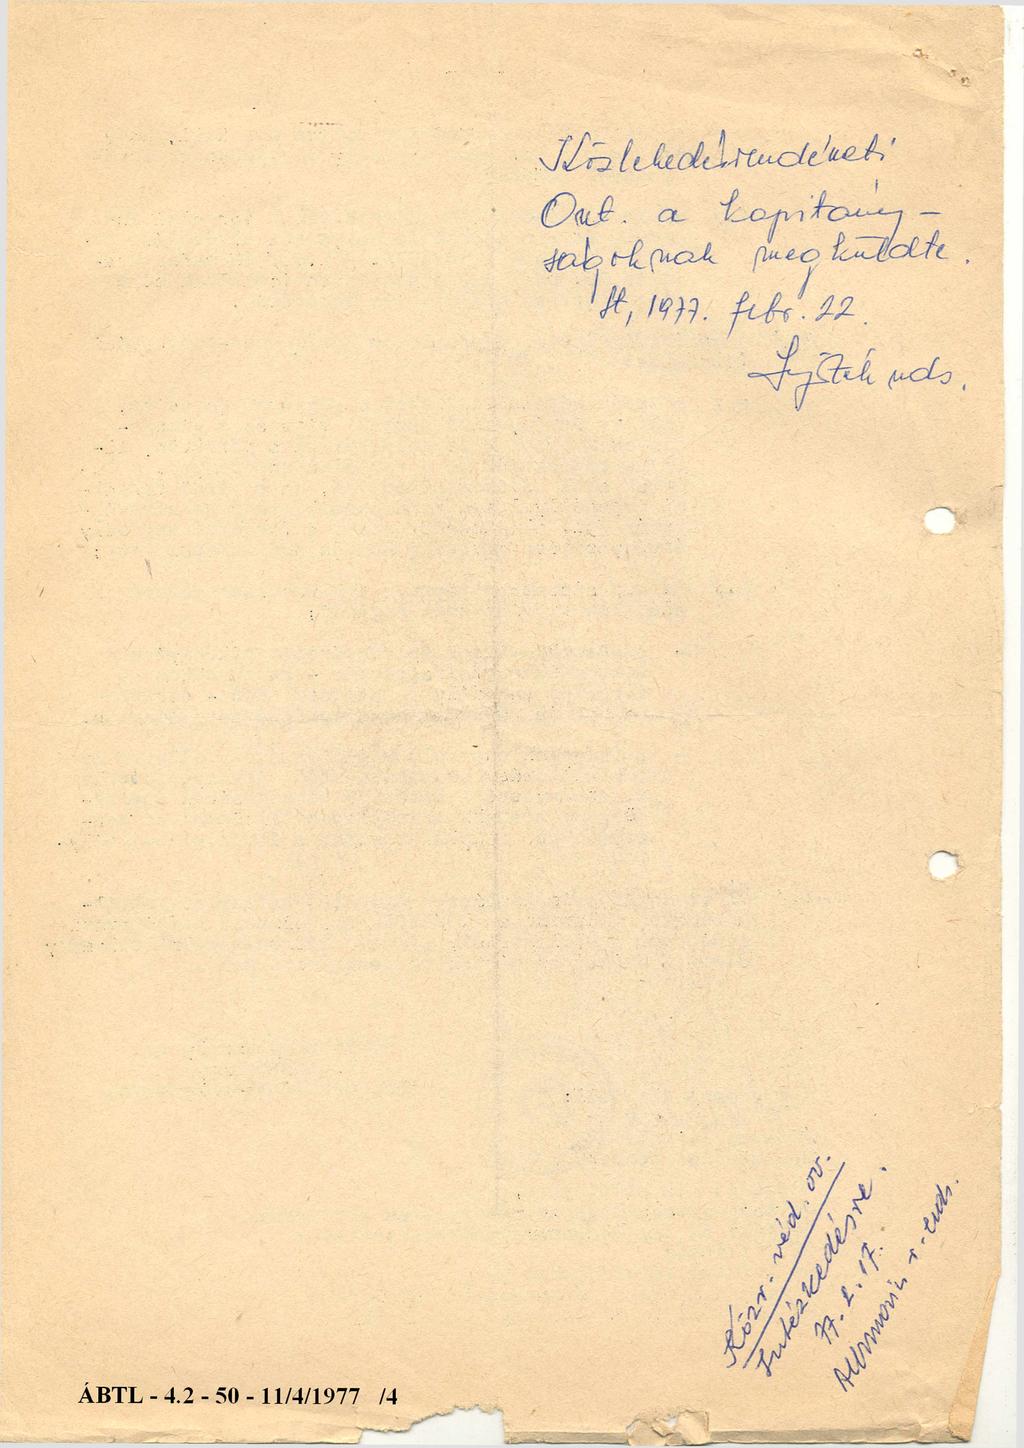 Közlekedésrendészeti
Oszt. a kapitány-
ságoknak megküldte.
1977. febr. 22.
Közr. véd. ov.
Intézkedésre.
77. 2. 17.
ÁBTL - 4.2 - 50 - 11/4/1977 /4